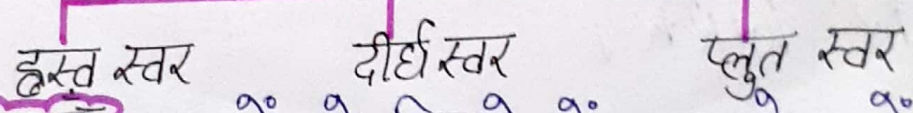 ह्रस्व स्वर दीर्घ स्वर प्लुत स्वर